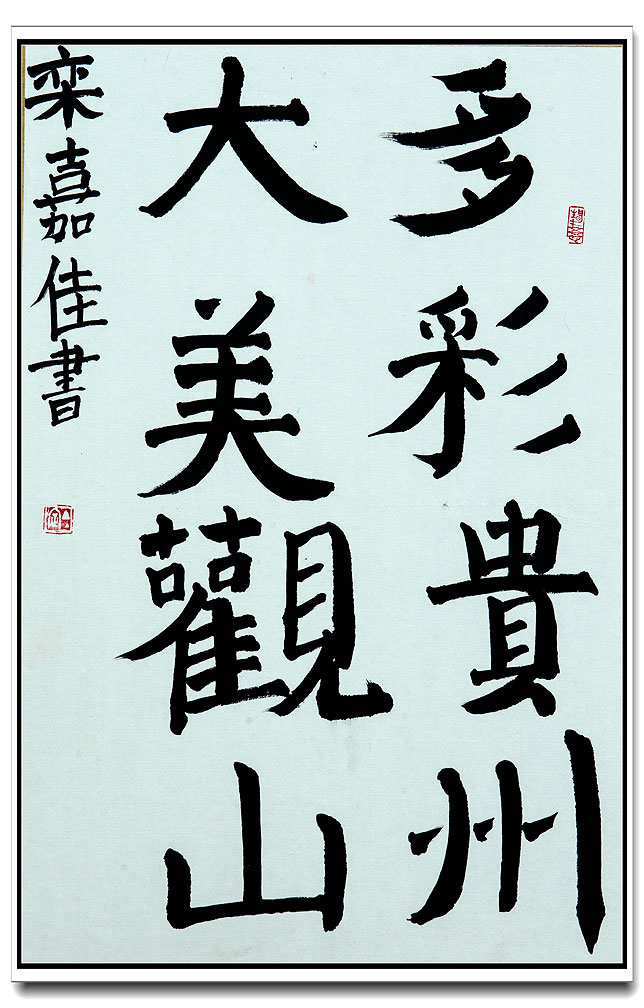 多彩貴州
大美觀山
栾嘉佳書